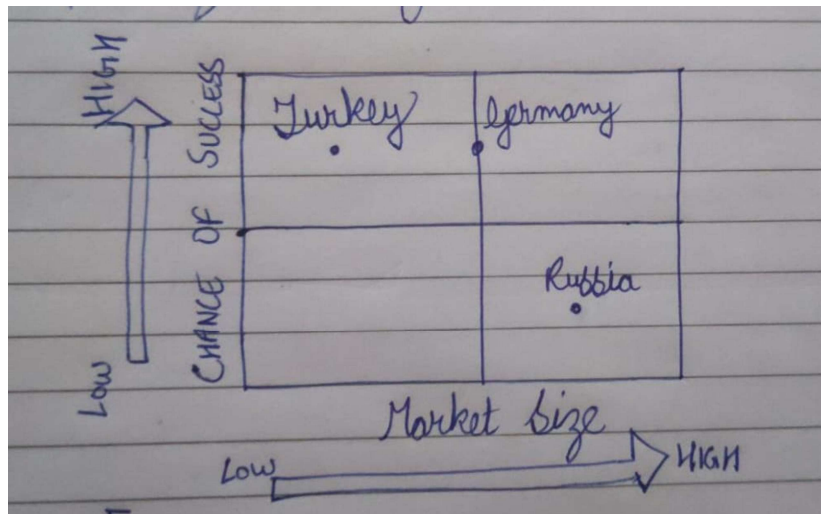 HIGH
CHANCE OF SUCCESS
Turkey
Germany
Russia
Low
Market Size
Low
HIGH